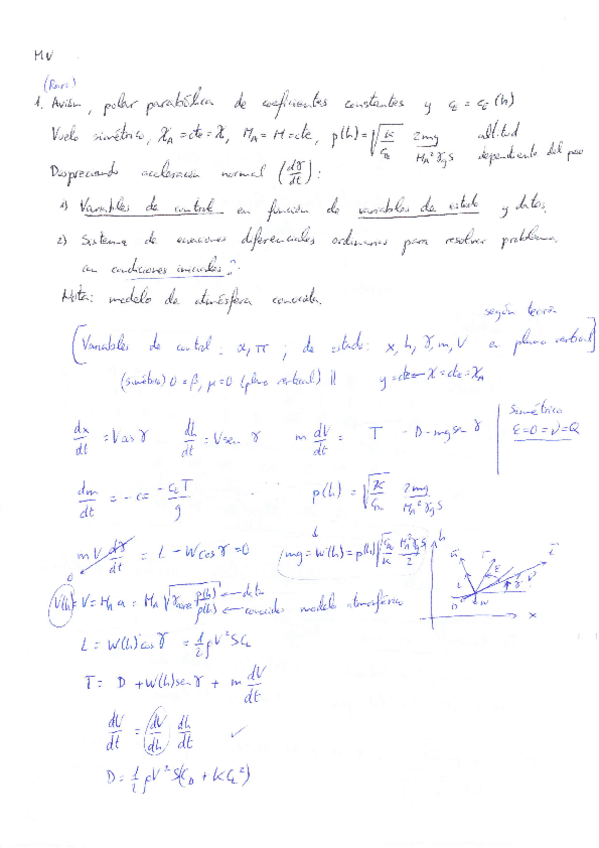 MV
(Raro)
1. Avión, polar parabólica de coeficientes constantes y c_E = c_E(h)
Vuelo simétrico, χ_A = cte = χ, M_A = M = cte, p(h) = √(K/C_D0) 2mg/(M_A² γ_g S) altitud dependiente del peso
Despreciando aceleración normal (dγ/dt):
1) Variables de control en función de variables de estado y datos.
2) Sistema de ecuaciones diferenciales ordinarias para resolver problema,
con condiciones iniciales?
Nota: modelo de atmósfera conocida.
según teoría
[Variables de control: α, π ; de estado: x, h, γ, m, V en plano vertical]
(simétrico) 0 = β, μ = 0 (plano vertical) y = cte χ = cte = χ_A
dx/dt = V cos γ dh/dt = V sen γ m dV/dt = T - D - mg sen γ
Simétrico
ε = 0 = ν = Q
dm/dt = -c = -c_E T/g p(h) = √(K/C_D0) 2mg/(M_A² γ_g S)
m V dγ/dt = L - W cos γ = 0 mg = W(h) = p(h) √(C_D0/K) M_A² γ_g S/2
0
V(h) = V = M_A a = M_A √(γ p(h)/ρ(h)) ← dato
← conocido modelo atmosférico
h
x
L = W(h) cos γ = 1/2 ρV²SC_L
T = D + W(h) sen γ + m dV/dt
dV/dt = dV/dh dh/dt ✓
D = 1/2 ρV²S(C_D + K C_L²)